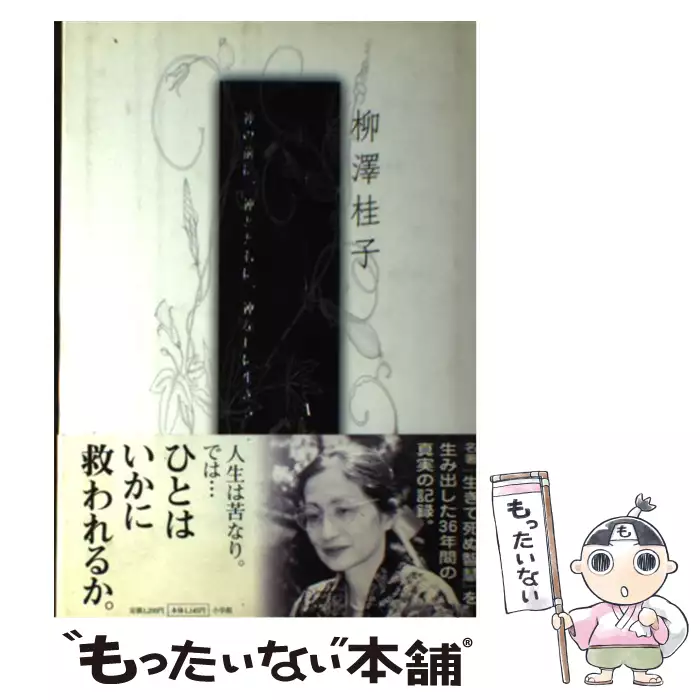 柳澤桂子
神の前に、神とともに、神なしに生きる
名著「生きて死ぬ智慧」を
生み出した36年間の
真実の記録。
人生は苦なり。
では…
ひとは
いかに
救われるか。
定価1,200円
本体1,143円
小学館
も
もったいない
“もったいない本舗”®